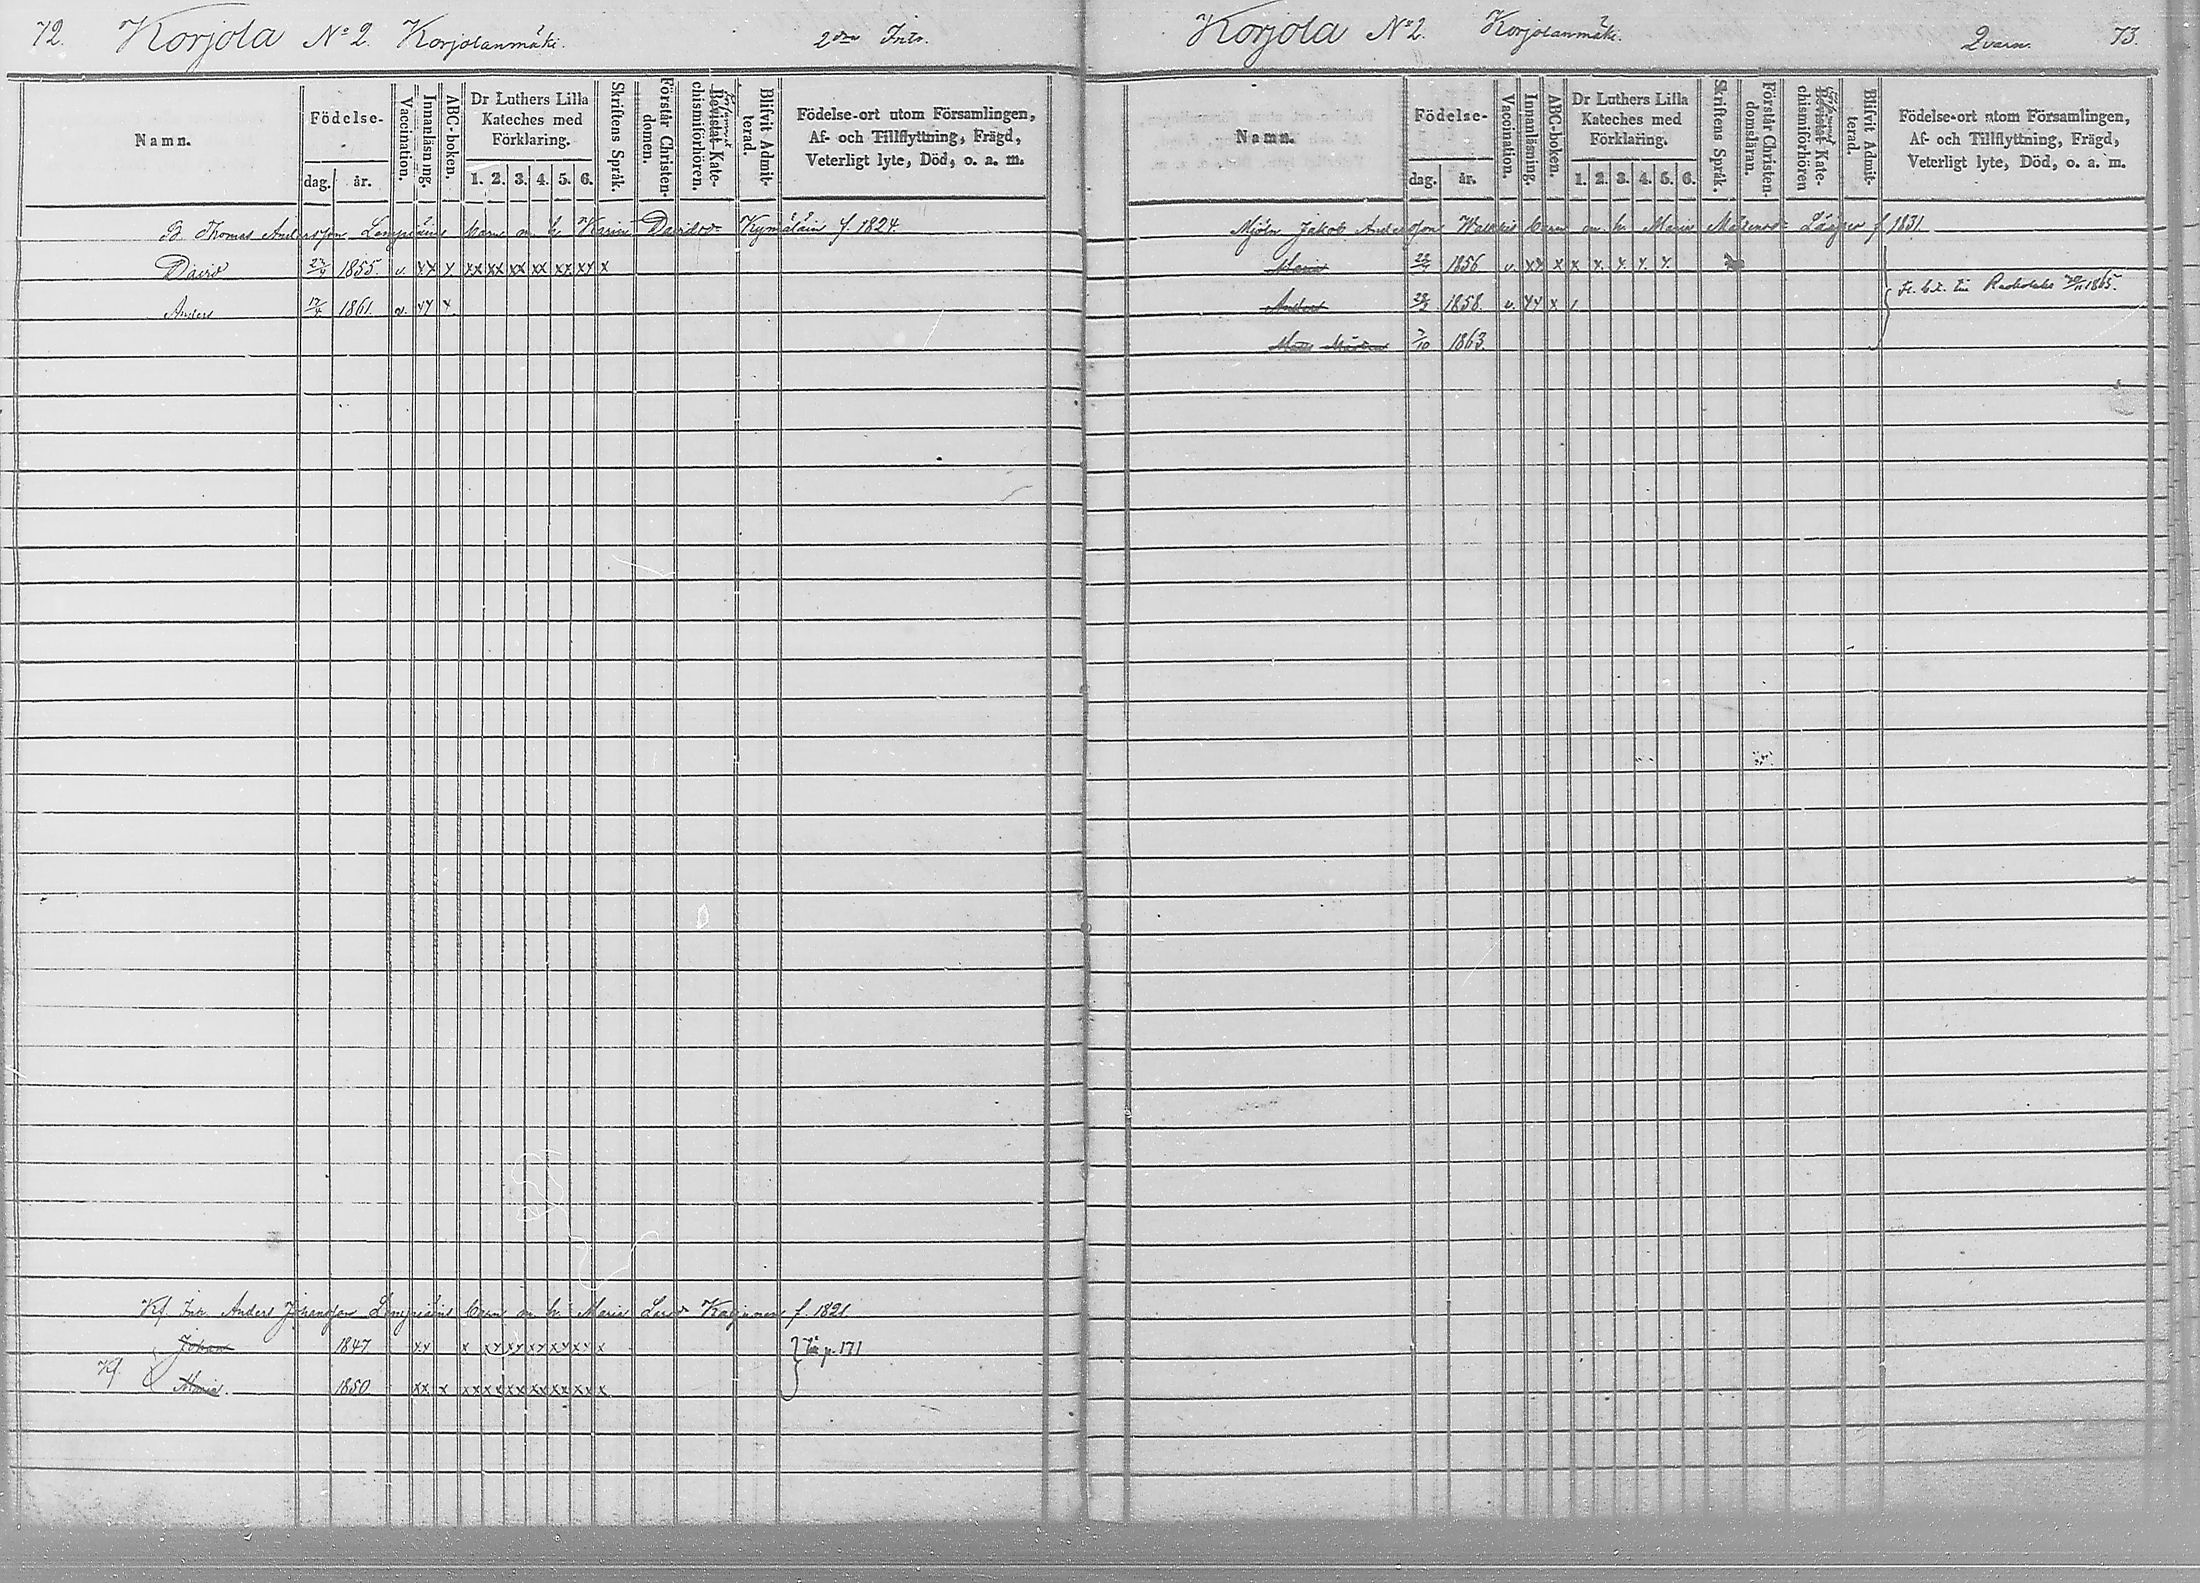 72. Korjola No 2. Korjolanmäki. 2dra Intr.
Namn.
Födelse-
dag. år.
Vaccination.
Innanläsning.
ABC-boken.
Dr Luthers Lilla
Kateches med
Förklaring.
1. 2. 3. 4. 5. 6.
Skriftens Språk.
Förstår Christen-
domen.
Bevistat Kate-
chismiförhören.
Blifvit Admit-
terad.
Födelse-ort utom Församlingen,
Af- och Tillflyttning, Frägd,
Veterligt lyte, Död, o. a. m.
B. Thomas Andersson Lempiäins barn m. h. Karin Davidsd. Kymäläin f. 1824.
David 1855. v. xx x xx xx xx xx xx xx x
Anders 17/4 1861. v. xx x
Kf. Inh. Anders Johansson Lempiäins barn m. h. Maria Larsd. f. 1821
Johan 1847 xx x xx xx xx xx xx x } Til p. 171
Kf.
Maria. 1850 xx x xx xx xx xx xx xx x
Korjola No 2. Korjolanmäki. Qvarn. 73.
Namn.
Födelse-
dag. år.
Vaccination.
Innanläsning.
ABC-boken.
Dr Luthers Lilla
Kateches med
Förklaring.
1. 2. 3. 4. 5. 6.
Skriftens Språk.
Förstår Christen-
domsläran.
Bevistat Kate-
chismiförhören
Blifvit Admit-
terad.
Födelse-ort utom Församlingen,
Af- och Tillflyttning, Frägd,
Veterligt lyte, Död, o. a. m.
Mjöln. Jakob Andersson barn m. h. Maria f. 1831.
Maria 1856 v. xx x x x. x. x. x.
Anders 1858. v. xx x
1865.
Matts 7/10 1863.